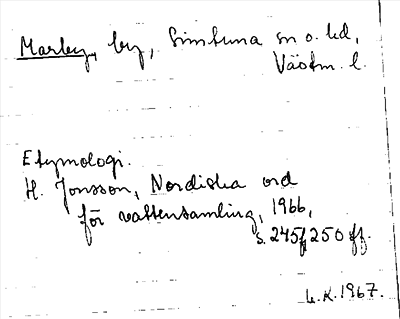 Marby, by, Simtuna sn o. hd,
Västm. l.
Etymologi.
H. Jonsson, Nordiska ord
för vattensamling, 1966,
s. 245f, 250 ff.
L.K. 1967.